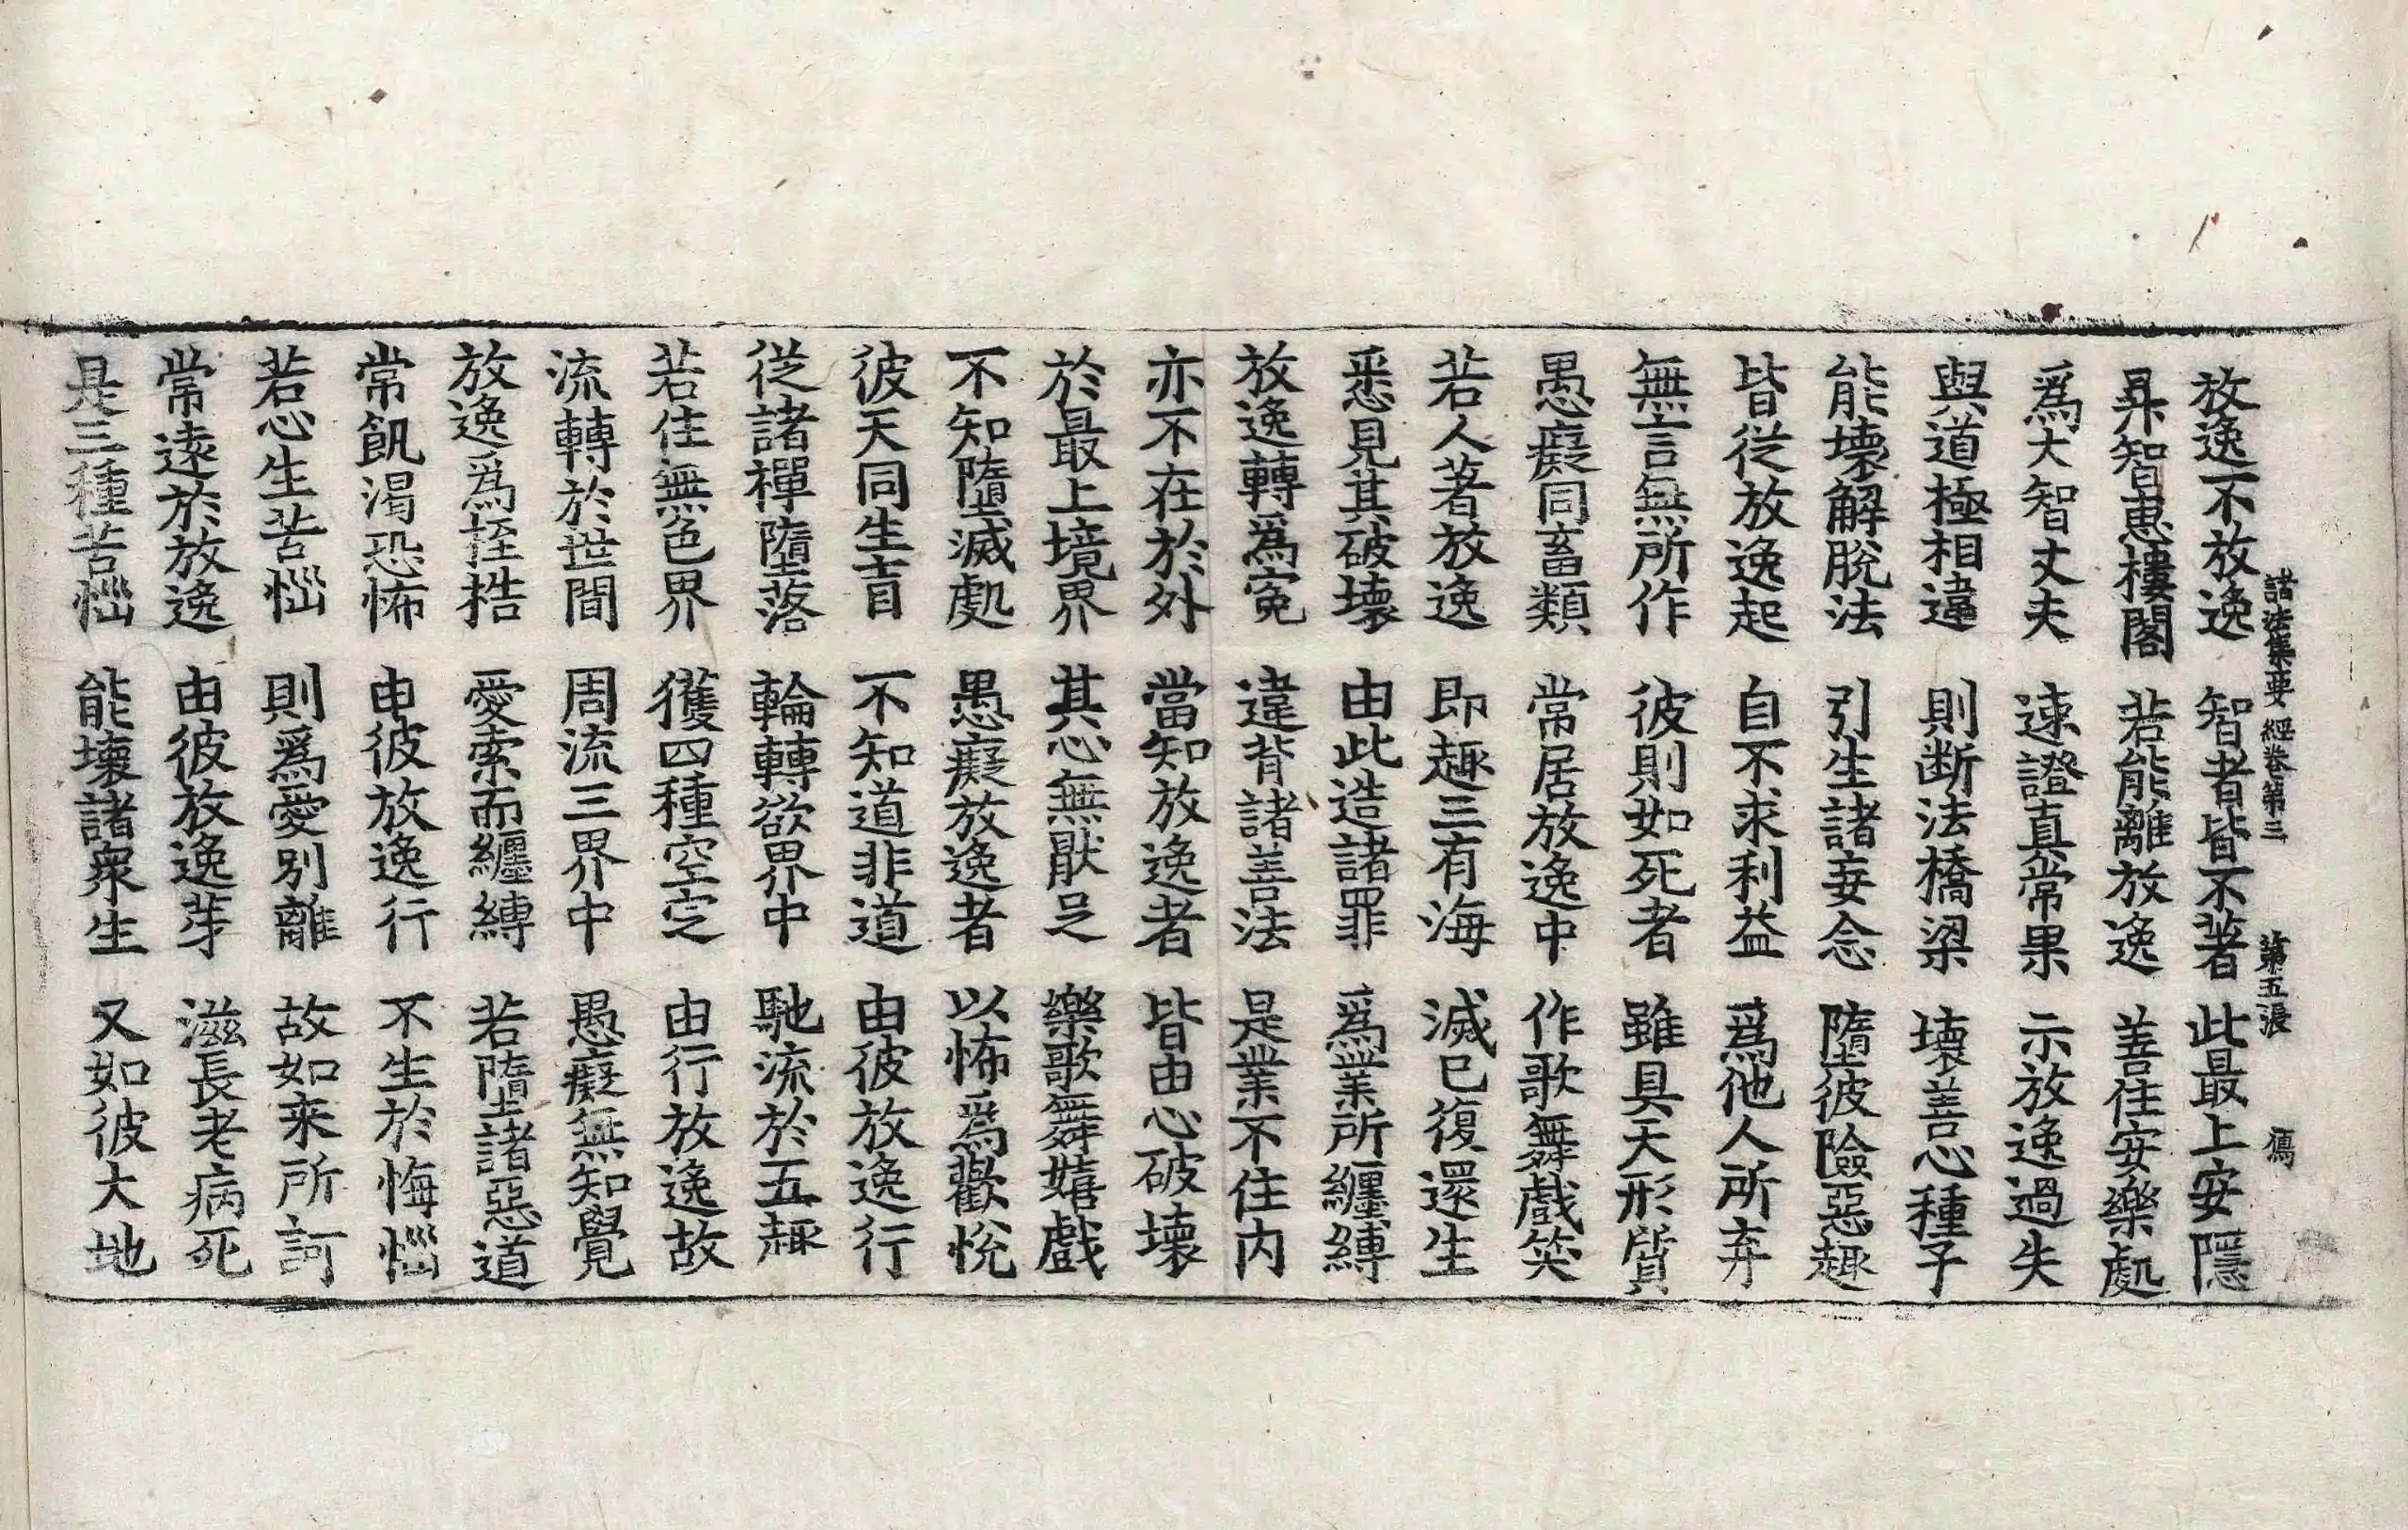 諸法集要經卷第三 第五張 傿
放逸不放逸 智者皆不著 此最上安隱
昇智惠樓閣 若能離放逸 善住安樂處
爲大智丈夫 速證真常果 示放逸過失
與道極相違 則断法橋梁 壞善心種子
能壞解脫法 引生諸妄念 墮彼險惡趣
皆從放逸起 自不求利益 爲他人所弃
無言無所作 彼則如死者 雖具天形質
愚癡同畜類 常居放逸中 作歌舞戲笑
若人著放逸 即趣三有海 滅已復還生
悉見其破壞 由此造諸罪 爲業所纏縛
放逸轉爲寃 違背諸善法 是業不住内
亦不在於外 當知放逸者 皆由心破壞
於最上境界 其心無猒足 樂歌舞嬉戲
不知墮滅處 愚癡放逸者 以怖爲歡悅
彼天同生盲 不知道非道 由彼放逸行
從諸禪墮落 輪轉欲界中 馳流於五趣
若住無色界 獲四種空定 由行放逸故
流轉於世間 周流三界中 愚癡無知覺
放逸爲挃梏 愛索而纏縛 若墮諸惡道
常飢渴恐怖 由彼放逸行 不生於悔惱
若心生苦惱 則爲愛别離 故如来所訶
常遠於放逸 由彼放逸芽 滋長老病死
是三種苦惱 能壞諸衆生 又如彼大地